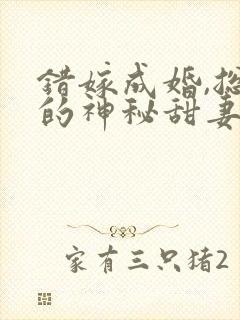 错嫁成婚,总
的神秘甜妻
家有三只猪2